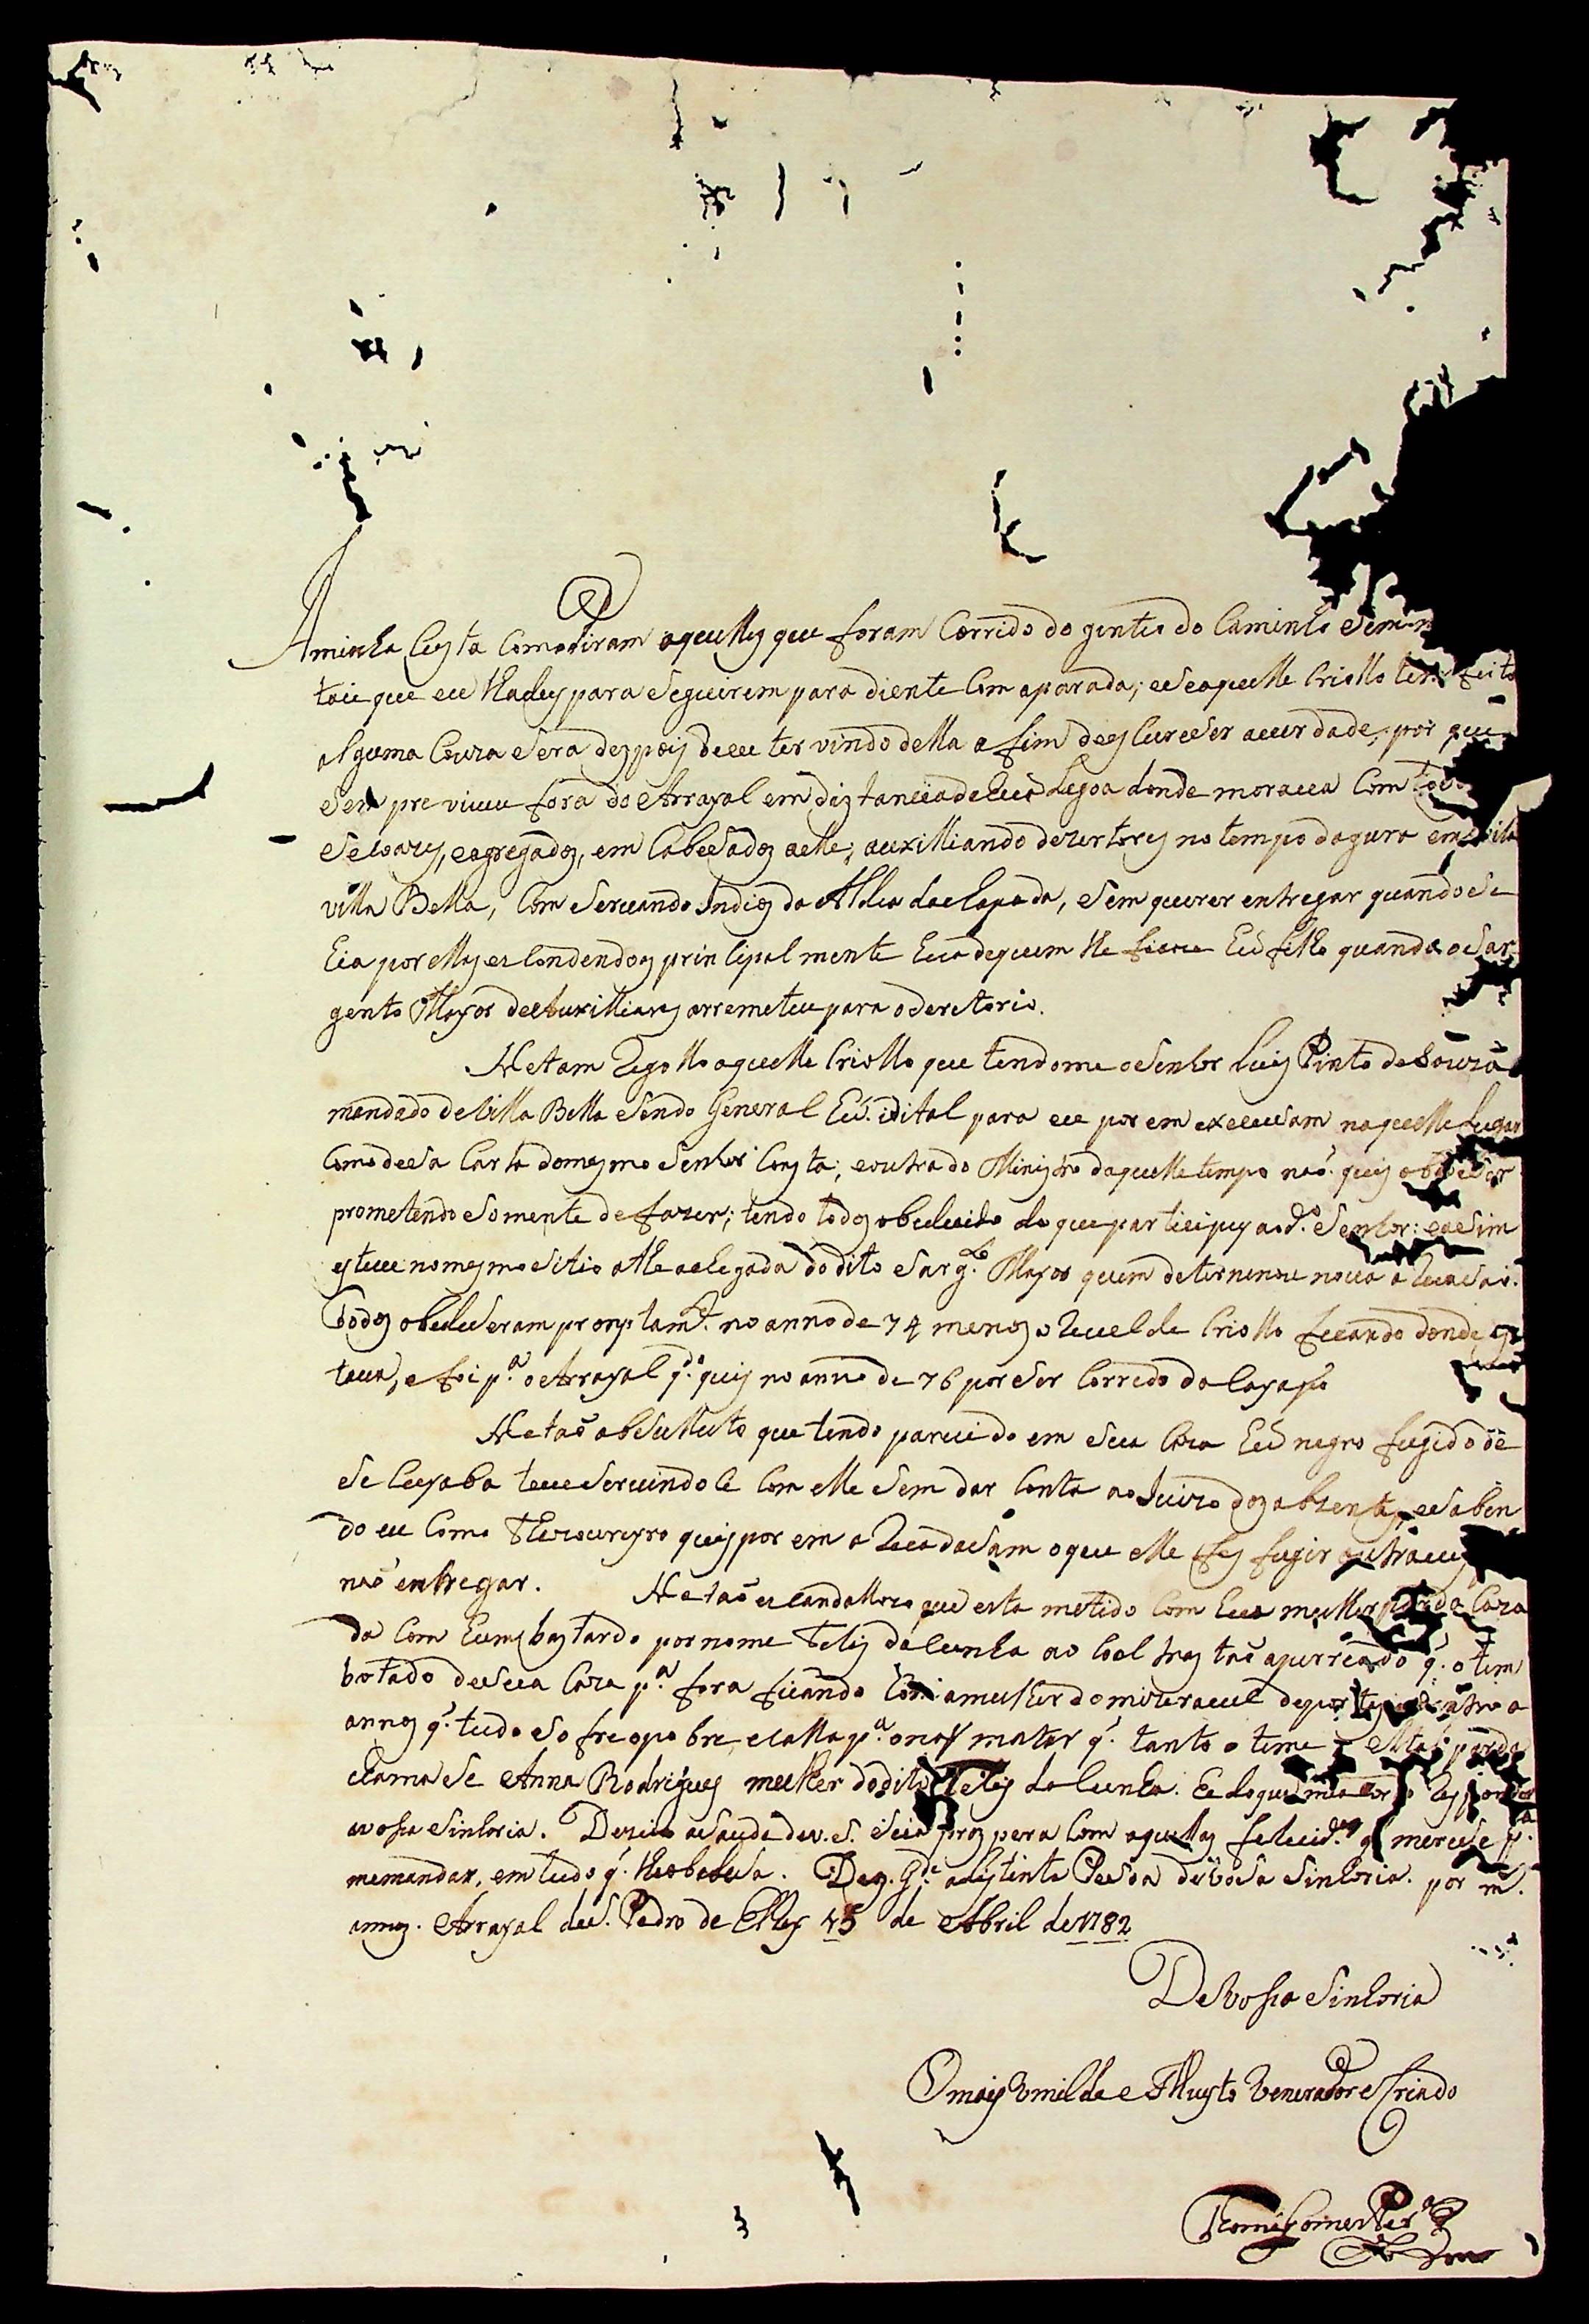 Aminha Custa Comediram aquelles que foram Corrido do gentio do Caminho
taie que eu lhadey para Seguirem para diente Com aparada; eSeaquelle Criollo ter feito
alguma Couza Sera despois deeu ter vindo della a fim deesCureSer auerdade; por que
Sem pre viueu fora do Arrayal em distancia de huã Legoa donde moraua Com
eagregados, em CabeSados aelle; auxilliando dezertores no tempo dagura em
villa Bella, Com Seruando Indios da Aldea da chapada, Sem querer entregar quando Se
hia por elles esCondendos prinCipal mente hua dequem lhe ficou hũ filho quando oSar
gento Mayor dosAuxilliares arremeteu para oderetorio.
He tam Regollo aquelle Criollo que tendome oSenhor Luis Pinto deSouza
mandado deVilla Bella Sendo General hũ iditál para eu por em execuSam naquelle Lugar
Como desua Carta domesmo Senhor Consta; eoutra do Ministro daquelle tempo naõ quis obedeSer
prometendo Somente defazer; tendo todos obedecido do que participey aod.º Senhor: eaSim
esteue nomesmo Sitio athe achegada do dito Sarg.to Mayor quem determinou
Todos obedeSeram promptam.te no anno de 74 menos o Reuelde Criollo ficando donde es
taua, e foi p.ª oArrayal q.do quis no anno de 76 por Ser Corrido do Cayapo
He taõ abSulluto que tendo pareCido em Sua Caza hũ negro fugido de
Se Cuyaba teue Seruindo Ce Com elle Sem dar Conta ao Juizo dos abzentes, eSaben
do eu Como Thezoureyro quis por em aReCadaSam oque elle fes fugir
naõ entregar. He taõ esCandallozo que esta metido Com hua mulher parda Caza
da Com hum bastardo por nome Felis da Cunha ao Coal tras taõ aperreado q̃. o tem
botado desua Caza p.ª fora ficando Com amulher domizerauel
annos q̃. tudo Sofre opobre, eCalla p.ª onaõ matar q̃. tanto o teme parda
chama Se Anna Rodrigues mulher dodito Felis da Cunha. he doque
avosa Sinhoria. Dezejo aSaude de v. S. Seia prospera Com aquellas feliCid.es q̃ mereSe p.ª
memandar, em tudo q̃. lheobedeSa. Deos. G.de adistinta PeSoa deVoSa Sinhoria. por m.s
annos. Arrayal de S. Pedro de ElRey 15 de Abril de 1782
DeVossa Sinhoria
Omais Vmilde e Venerador e Criado